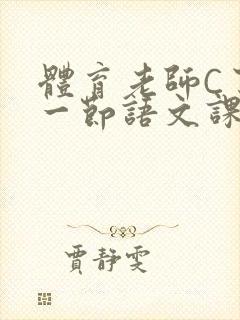 體育老師C了
一節語文課
賈靜雯